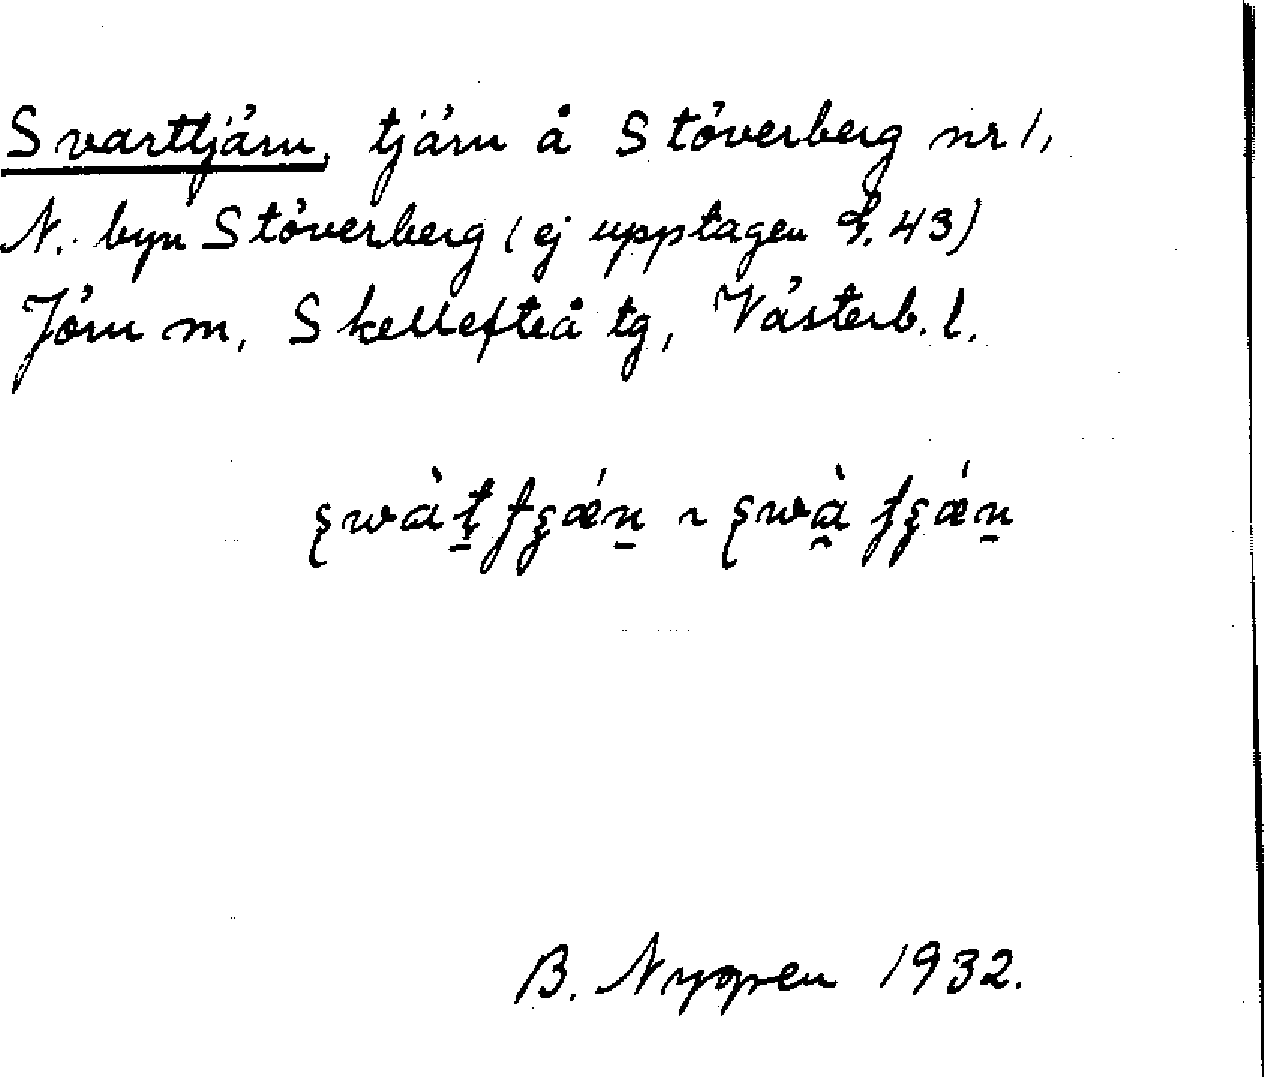 Svarttjärn, tjärn å Stöverberg nr 1,
N. byn Stöverberg (ej upptagen 43)
Jörn m, Skellefteå tg, Västerb. l.
B. Nygren 1932.